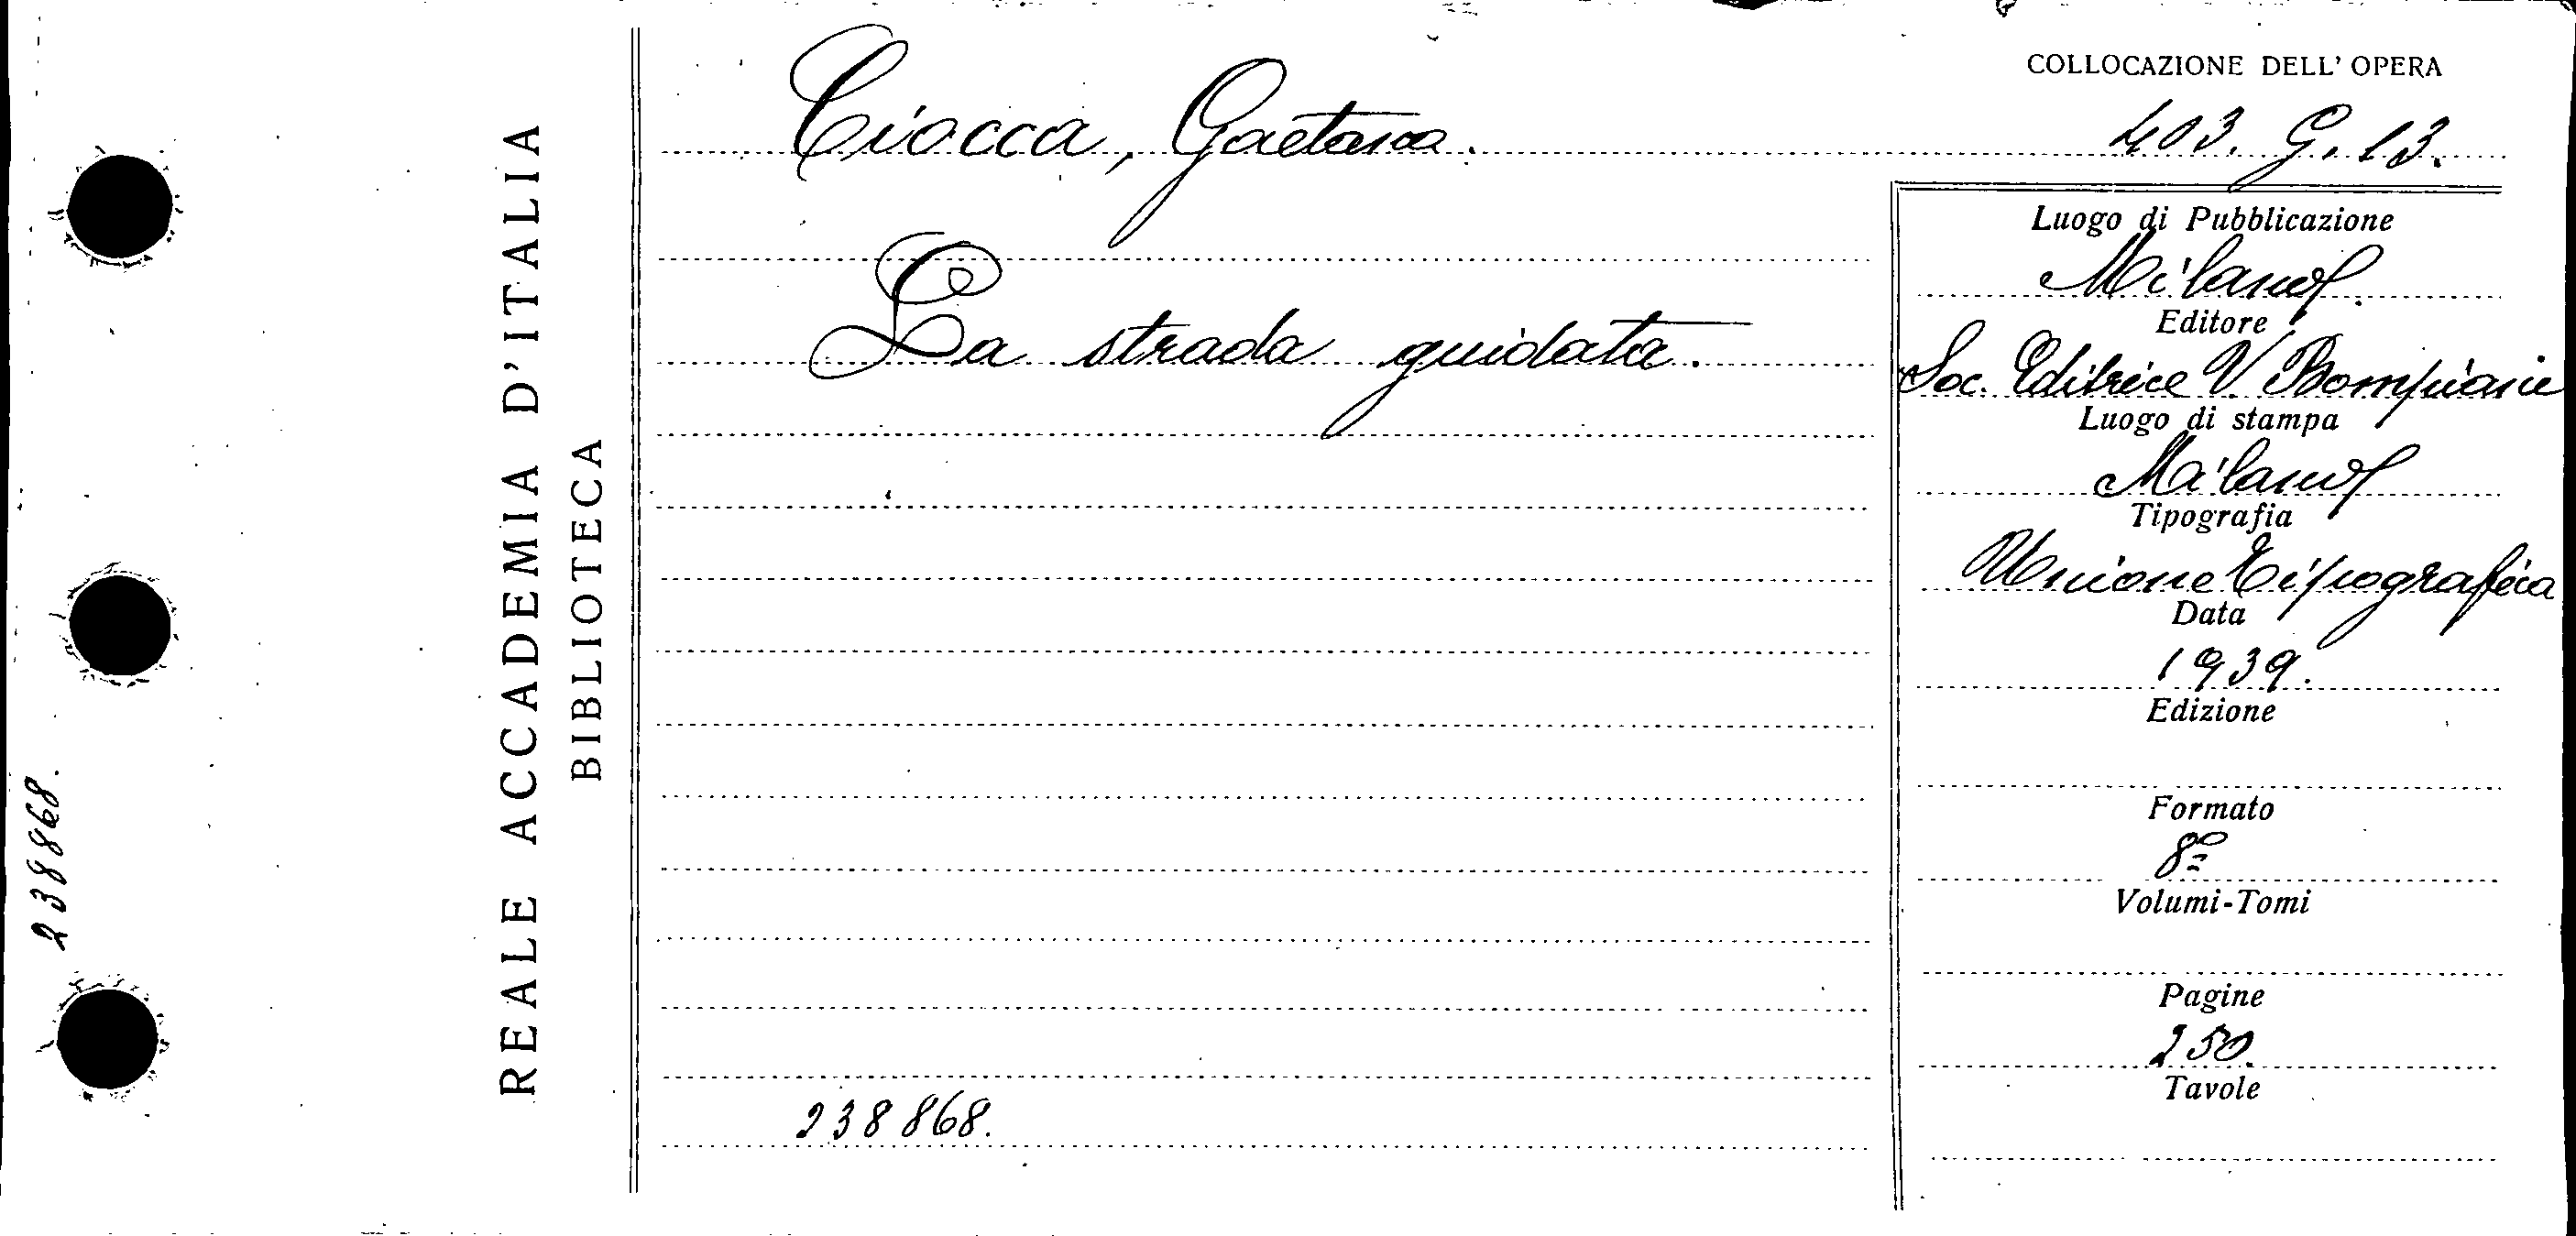 COLLOCAZIONE DELL' OPERA
Ciocca, Gaetano.
403. G. 13.
La strada guidata.
Luogo di Pubblicazione
Milano.
Editore
Soc. Editrice V. Bompiani
Luogo di stampa
Milano
Tipografia
Unione Tipografica
Data
1939.
Edizione
Formato
8º
Volumi-Tomi
Pagine
250.
Tavole
238868.
REALE ACCADEMIA D'ITALIA
BIBLIOTECA
238868.